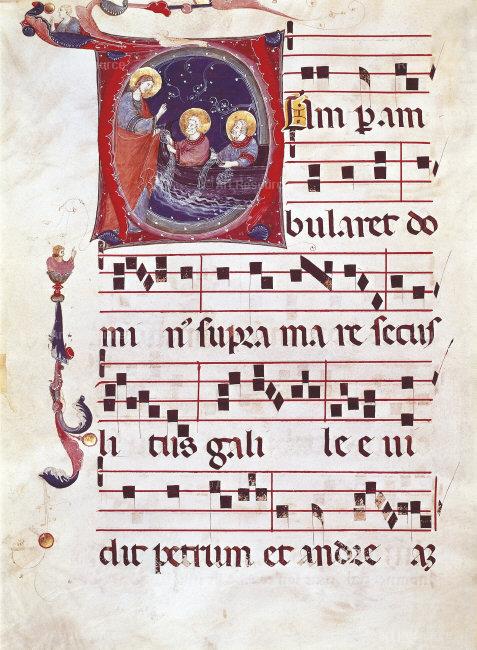 Dum ꝑam
bularet do
mi nꝰ supra ma re secus
li tus gali le e ui
dit petrum et andre aꝫ